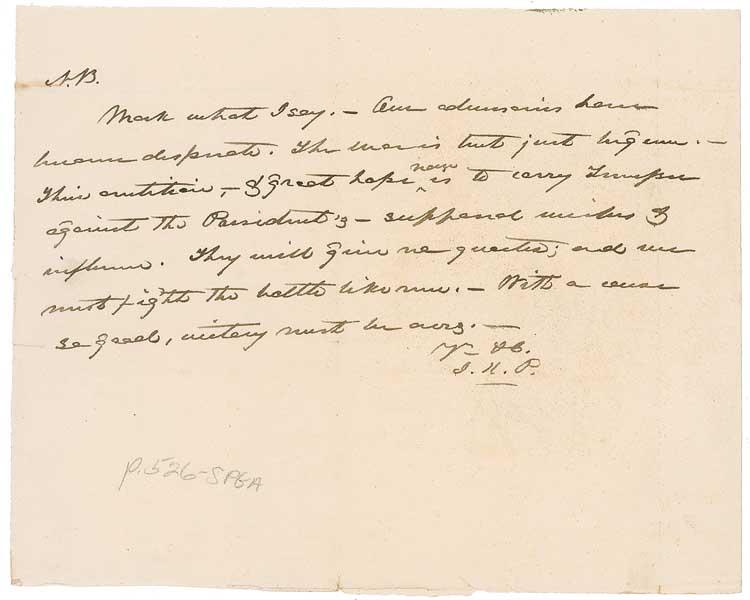 N.B.
Mark what I say. – Our adversaries have
become desperate. The war is but just begun. –
Their ambition, – & great hope now is to carry Tennessee
against the President's – supposed wishes &
influence. They will give no quarter; and we
must fight the battle like men. – With a cause
so good, victory must be ours. –
Yr. &C.
J. K. P.
p. 526-SPGA